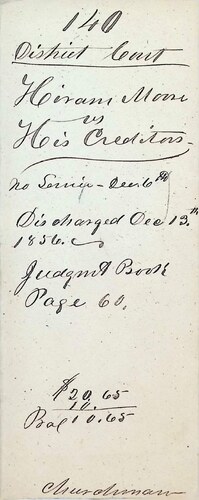 140
District Court
Hiram Moore
vs
His Creditors
No Service - Dec. 6th
Discharged Dec 13th
1856.
Judgmt Book
Page 60.
$20.65
10.
Bal 10.65
Churchman